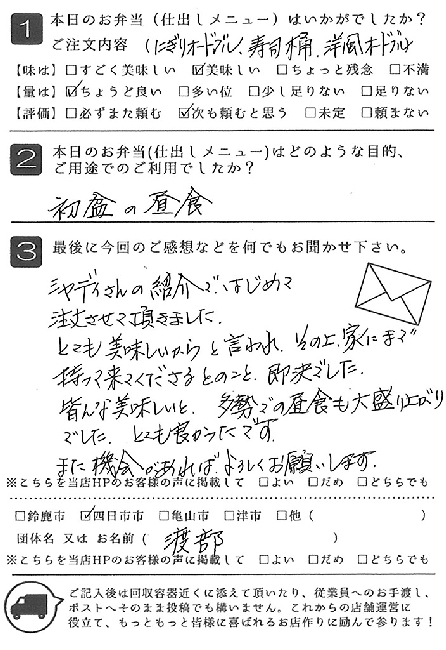 1 本日のお弁当（仕出しメニュー）はいかがでしたか？
ご注文内容（にぎりオードブル、寿司桶、洋風オードブル
【味は】□すごく美味しい ☑美味しい □ちょっと残念 □不満
【量は】☑ちょうど良い □多い位 □少し足りない □足りない
【評価】□必ずまた頼む ☑次も頼むと思う □未定 □頼まない
2 本日のお弁当(仕出しメニュー)はどのような目的、
ご用途でのご利用でしたか？
初盆の昼食
3 最後に今回のご感想などを何でもお聞かせ下さい。
シャディさんの紹介で、はじめて
注文させて頂きました。
とても美味しいからと言われ、その上、家にまで
持って来てくださるとのこと、即決でした。
皆んな美味しいと、多勢での昼食も大盛り上がり
でした。とても良かったです。
また機会があれば、よろしくお願いします。
※こちらを当店HPのお客様の声に掲載して □よい □だめ □どちらでも
□鈴鹿市 ☑四日市市 □亀山市 □津市 □他（ ）
団体名 又は お名前（ 渡部 ）
※こちらを当店HPのお客様の声に掲載して □よい □だめ □どちらでも
ご記入後は回収容器近くに添えて頂いたり、従業員へのお手渡し、
ポストへそのまま投稿でも構いません。これからの店舗運営に
役立て、もっともっと皆様に喜ばれるお店作りに励んで参ります！